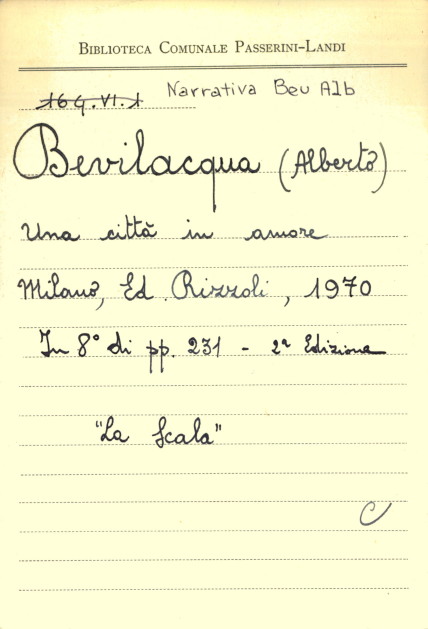 BIBLIOTECA COMUNALE PASSERINI-LANDI
164.VI.1 Narrativa Bev Alb
Bevilacqua (Alberto)
Una città in amore
Milano, Ed. Rizzoli, 1970
In 8° di pp. 231 - 2ª Edizione
"La Scala"
C